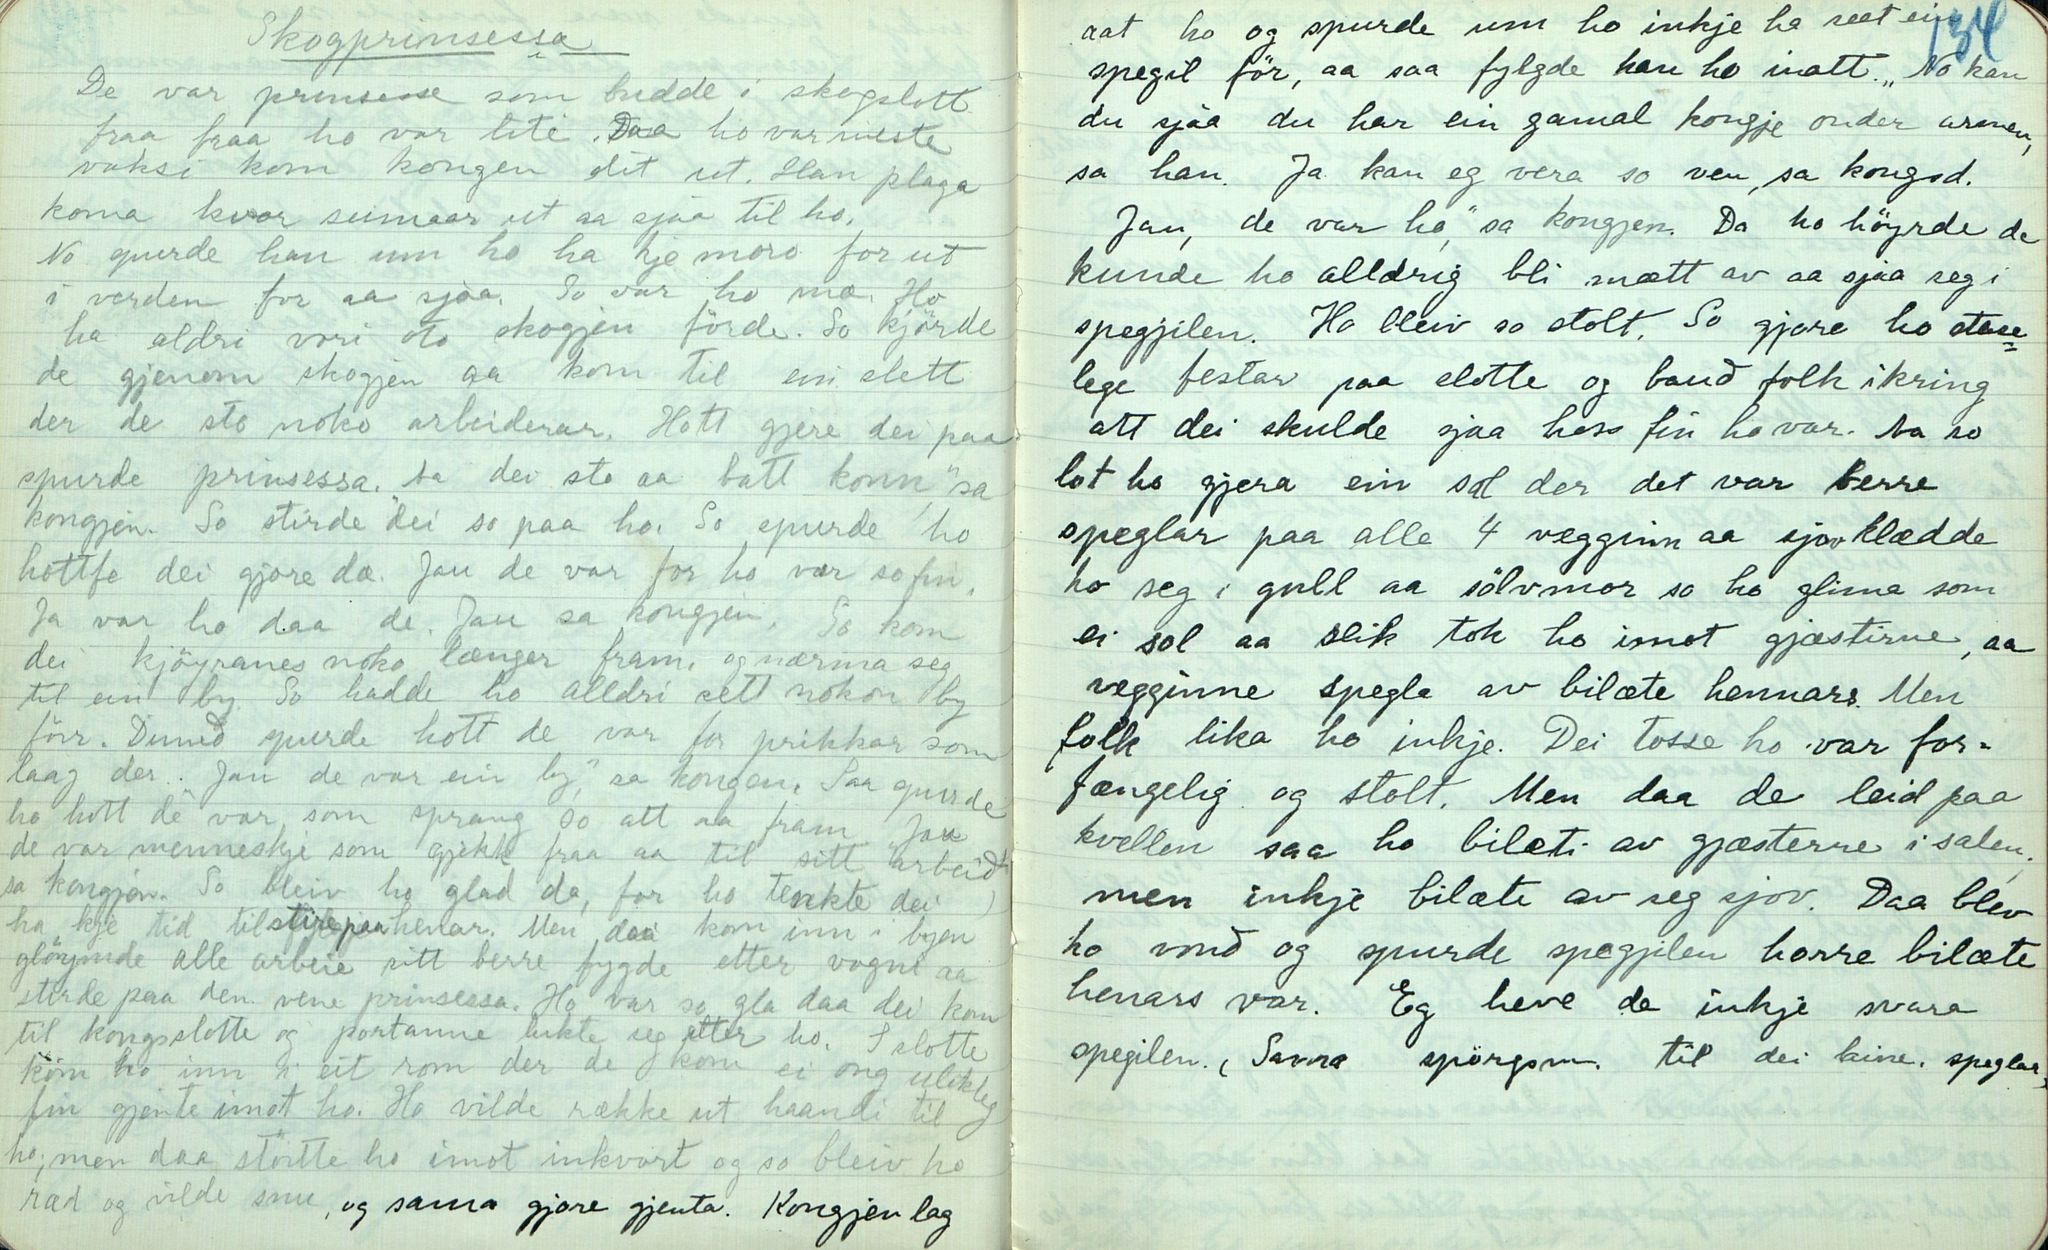 Skogprinsessa
De var prinsesse som budde i skogslott
fraa fraa ho var lite. Daa ho var meste
vaksi kom kongen dit ut. Han plaga
koma kvar sumaar ut aa sjaa til ho.
No spurde han um ho ha kje moro for ut
i verden for aa sjaa. So var ho mæ. Ho
ha aldri vori oto skogjen förde. So kjörde
de gjenom skogjen aa kom til ein slett
der de sto noko arbeiderar. Hott gjere dei paa
spurde prinsessa. Aa dei sto aa batt konn" sa
kongjen. So stirde dei so paa ho. So spurde ho
hottfo dei gjore dæ. Jau de var for ho var so fin.
Ja var ho daa de. Jau sa kongjen. So kom
dei kjöyranes noko længer fram. og nærma seg
til ein by. So hadde ho alldri sett nokon by
förr. Dimed spurde hott de var for prikkar som
laag der. "Jau de var ein by," sa kongen. Saa spurde
ho hott de var som sprang so att aa fram Jau
de var menneskje som gjekk fraa aa til sitt arbeid"
sa kongjen. So bleiv ho glad da, for ho tenkte dei
ha kje tid til stire paa henar. Men daa kom inn i byen
glöymde alle arbeie sitt berre fygde etter vogni aa
stirde paa den vene prinsessa. Ho var so gla daa dei kom
til kongsslotte og portanne lukte seg etter ho. I slotte
kom ho inn i eit rom der de kom ei ong ulikleg
fin gjente imot ho. Ho vilde række ut haandi til
ho, men daa stötte ho imot inkvart og so bleiv ho
ræd og vilde snu, og sama gjore gjenta. Kongjen lag
134
aat ho og spurde um ho inkje ha seet ein
spegil för, aa saa fylgde han ho inatt. "No kan
du sjaa du har ein gamal kongje onder armen,
sa han. Ja kan eg vera so ven, sa kongsd.
Jau, de var ho," sa kongjen. Da ho höyrde de
kunde ho alldrig bli mætt av aa sjaa seg i
spegjilen. Ho bleiv so stolt. So gjore ho stase-
lege festar paa slotte og baud folk ikring
att dei skulde sjaa hoss fin ho var. Aa so
lot ho gjera ein sal der det var berre
speglar paa alle 4 vegginn aa sjov klædde
ho seg i gull aa sölvmor so ho glima som
ei sol aa slik tok ho imot gjæstirne, aa
vegginne spegla av bilæte hennars. Men
folk lika ho inkje. Dei tosse ho var for-
fængelig og stolt. Men daa de leid paa
kvellen saa ho bilæti av gjæsterne i salen,
men inkje bilæte av seg sjov. Daa blev
ho vond og spurde spegjilen horre bilæte
henars var. Eg heve de inkje svara
spegilen. (Sama spörgsm. til dei hine. speglar.